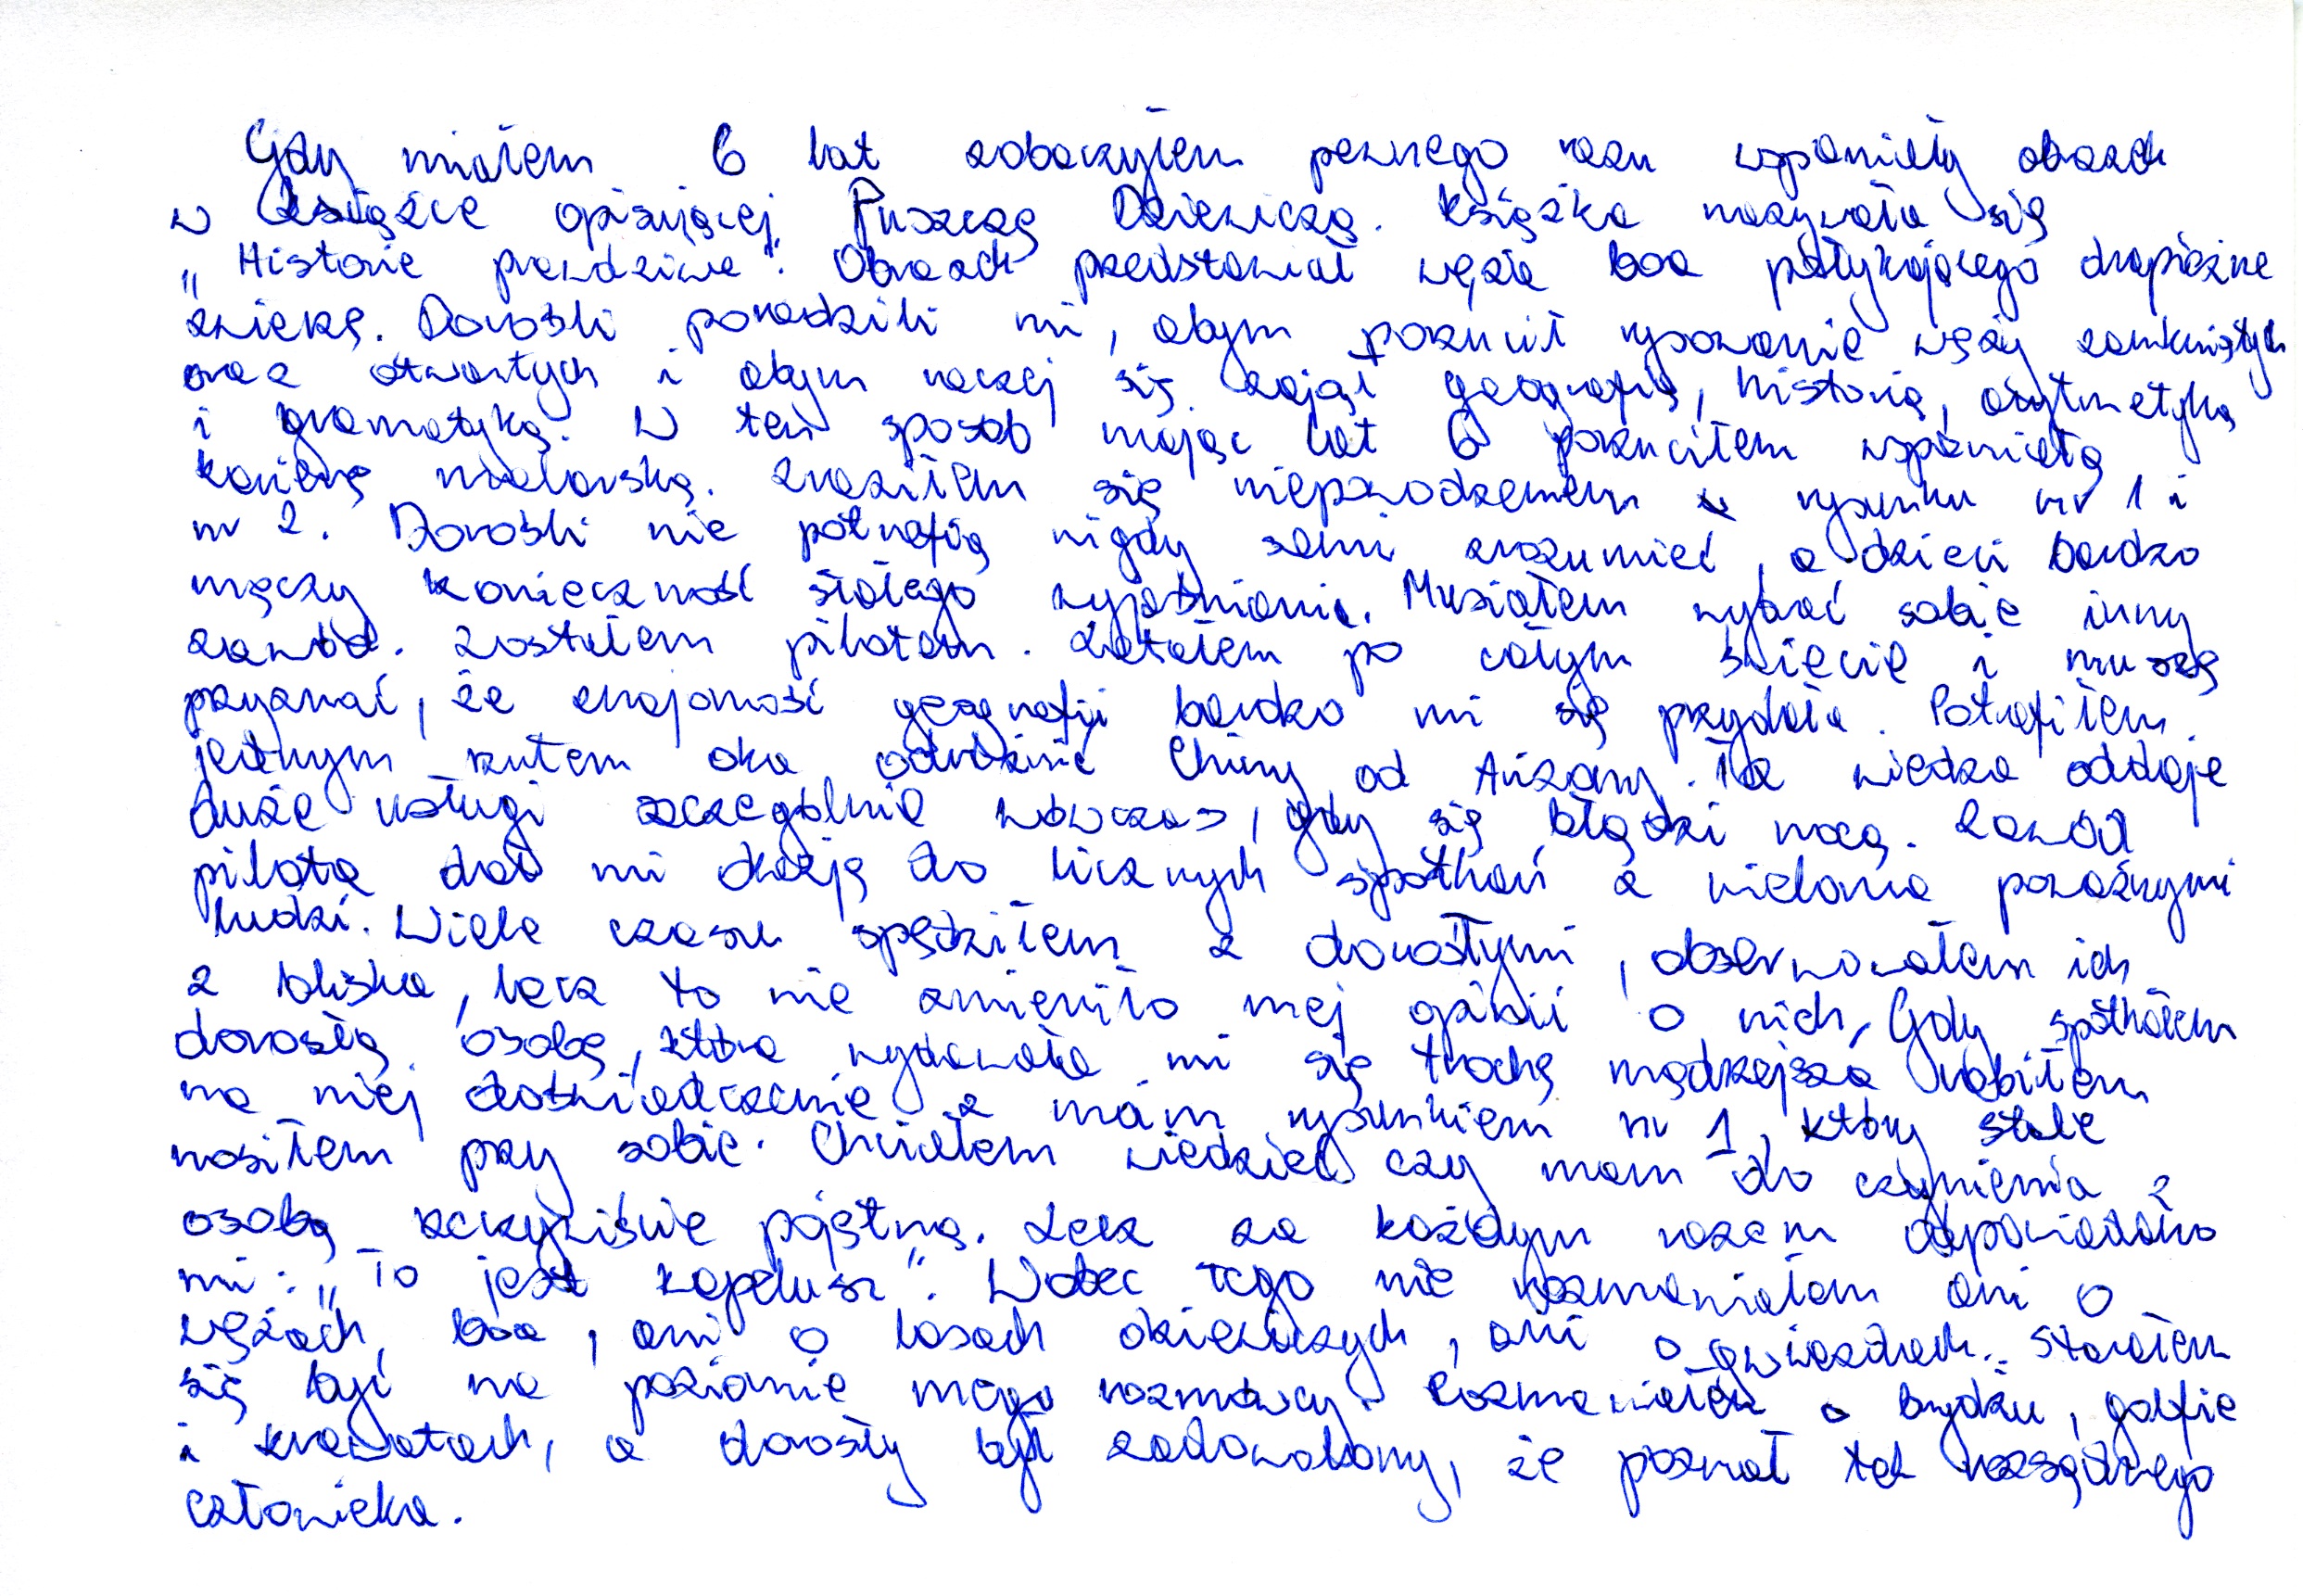 Gdy miałem 6 lat zobaczyłem pewnego razu wspaniały obrazek
w książce opisującej Puszczę Dziewiczą. Książka nazywała się
„Historie prawdziwe". Obrazek przedstawiał węża boa połykającego drapieżne
zwierzę. Dorośli poradzili mi, abym porzucił rysowanie węży zamkniętych
oraz otwartych i abym raczej się zajął geografią, historią, arytmetyką
i gramatyką. W ten sposób mając lat 6 porzuciłem wspaniałą
karierę malarską. Zraziłem się niepowodzeniem rysunku nr 1 i
nr 2. Dorośli nie potrafią nigdy sami zrozumieć, a dzieci bardzo
męczy konieczność stałego wyjaśniania. Musiałem wybrać sobie inny
zawód. Zostałem pilotem. Latałem po całym świecie i muszę
przyznać, że znajomość geografii bardzo mi się przydała. Potrafiłem
jednym rzutem oka odróżnić Chiny od Arizony. Ta wiedza oddaje
duże usługi szczególnie wówczas, gdy się błądzi nocą. Zawód
pilota dał mi okazję do licznych spotkań z wieloma poważnymi
ludźi. Wiele czasu spędziłem z dorosłymi, obserwowałem ich
z bliska, lecz to nie zmieniło mej opinii o nich. Gdy spotkałem
dorosłą osobę, która wydawała mi się trochę mądrzejsza robiłem
na niej doświadczenie z moim rysunkiem nr 1, który stale
nosiłem przy sobie. Chciałem wiedzieć czy mam do czynienia z
osobą rzeczywiście pojętną. Lecz za każdym razem odpowiadano
mi: „To jest kapelusz". Wobec tego nie rozmawiałem ani o
wężach boa, ani o lasach dziewiczych, ani o gwiazdach. Starałem
się być na poziomie mego rozmówcy. Rozmawiałem o brydżu, golfie
i krawatach, a dorosły był zadowolony, że poznał tak rozsądnego
człowieka.